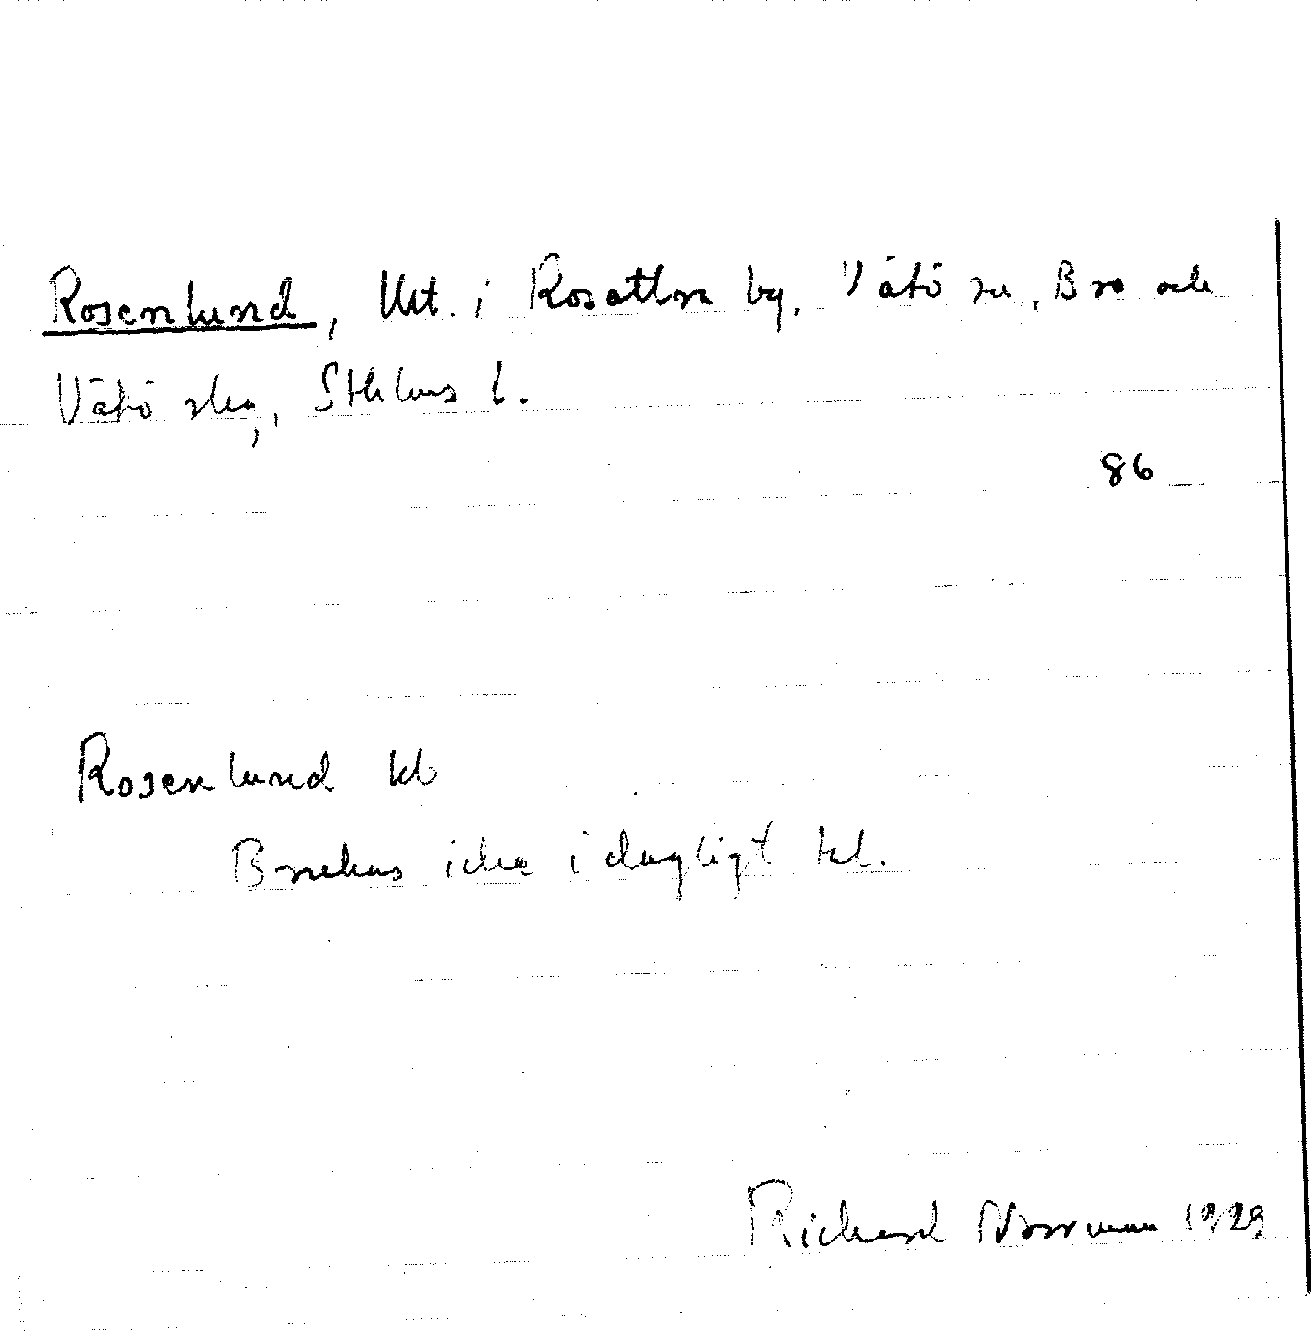 Rosenlund, Utt. i Rosattra by, Vätö sn, Bro och
Vätö skg, Sthlms l.
86
Rosenlund kb
Brukas icke i dagligt tal.
Richard Norrman 1929